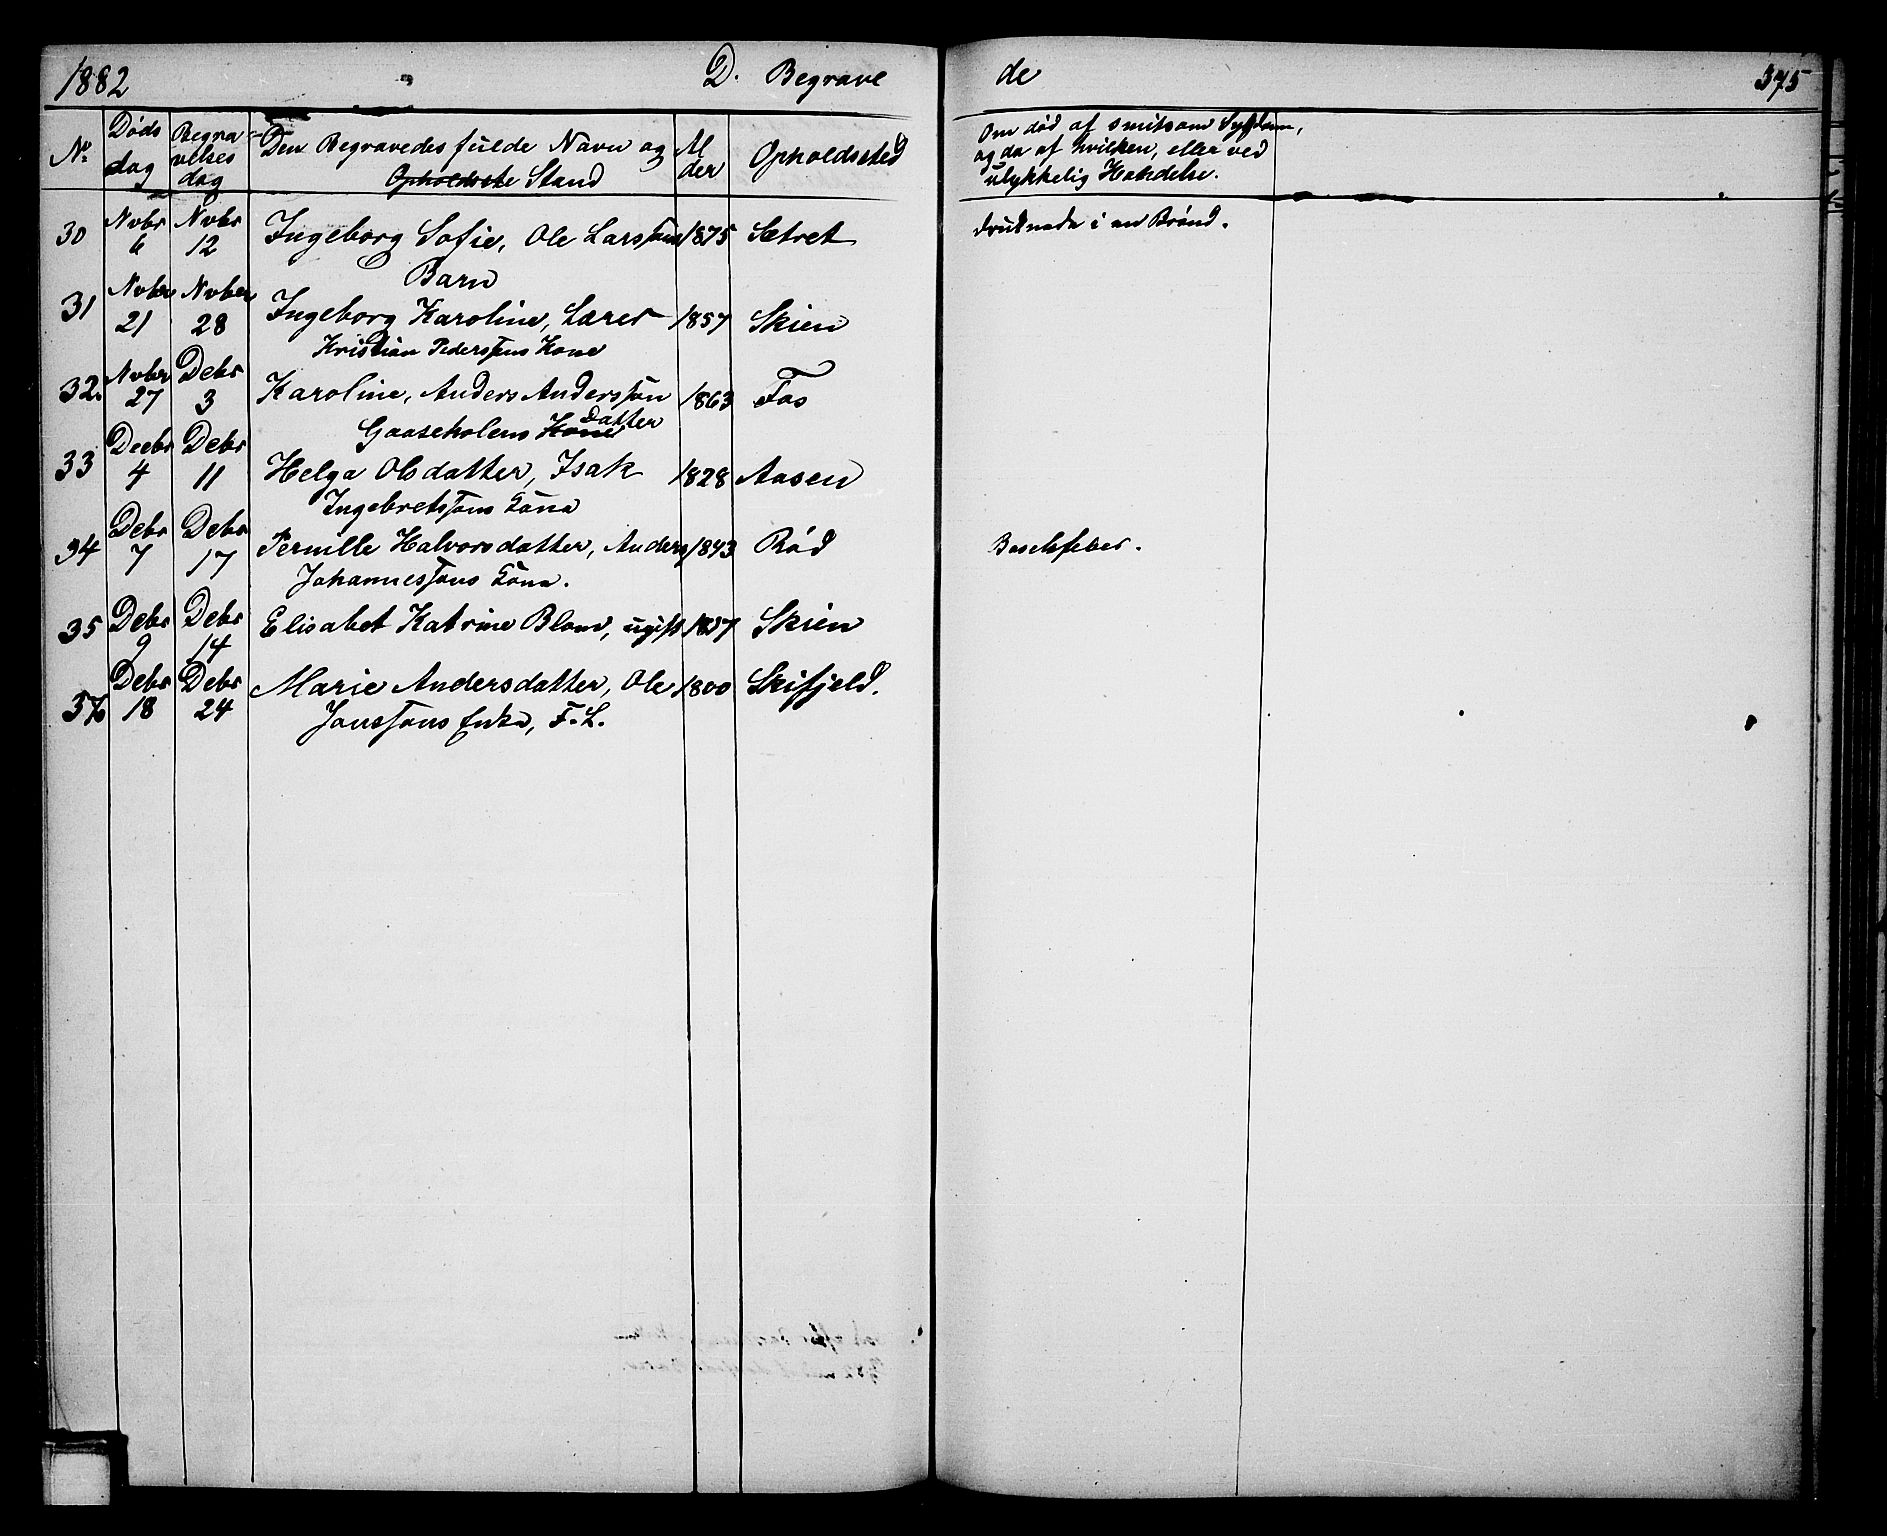 1882 D. Begrave de 375
No. Døds dag Begra-velses dag Den Begravedes fulde Navn og Opholdsste Stand Al der Opholdssted Om død af smitsom Sygdom, og da af hvilken, eller ved ulykkelig Hændelse.
30 Novbr 6 Novbr 12 Ingeborg Sofie, Ole Larssøns 1875 Sætret druknede i en Brønd.
Barn
31 Novbr 21 Novber 28 Ingeborg Karoline, Lærer 1857 Skien
Kristian Pederssøns Kone
32. Novbr 27 Debr 3 Karoline, Anders Anderssøn 1863 Fos
Gaaseholens Kone Datter
33 Decbr 4 Debr 11 Helga Olsdatter, Isak 1828 Aasen
Ingebretsøns Kone
34 Debr 7 Debr 17 Pernille Halvorsdatter, Anders 1843 Rød Barselsfeber.
Johannessøns Kone.
35 Debr 9 Debr 14 Elisabet Katrine Blom, ugift Skien
36 Debr 18 Debr 24 Marie Andersdatter, Ole 1800 Skifjeld.
Jonssøns Enke, F.L.